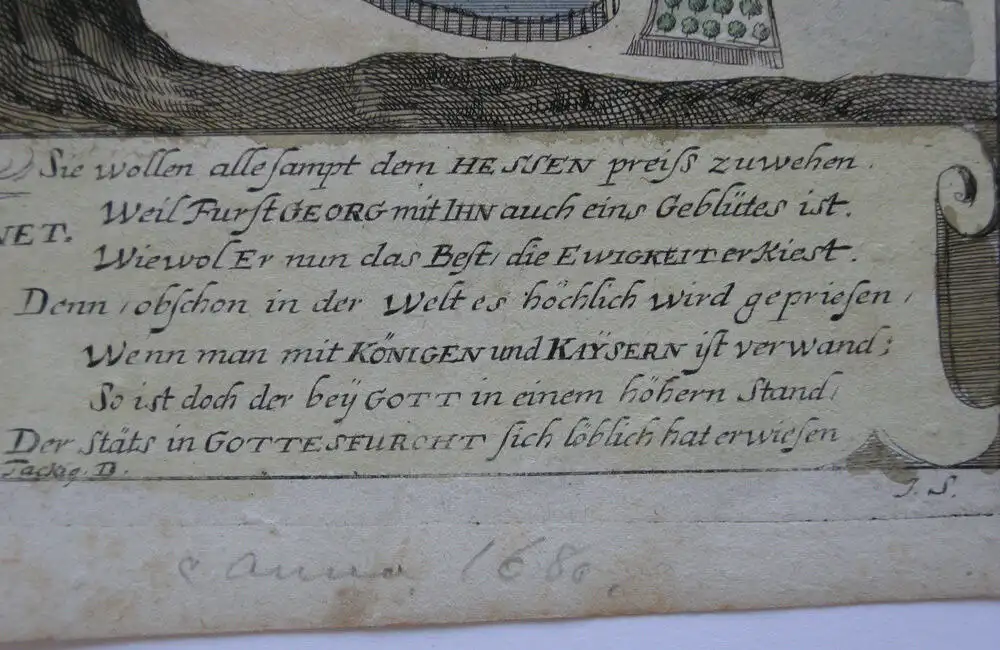 Sie wollen alle sampt dem HESSEN preiſs zuwehen.
Weil Furſt GEORG mit IHN auch eins Geblütes ist.
NET.
Wiewol Er nun das Beſt/ die EWIGKEIT erKiest.
Denn / obſchon in der Welt es höchlich wird geprieſen /
Wenn man mit KÖNIGEN und KAŸSERN iſt verwand;
So ist doch der beÿ GOTT in einem höhern Stand/
Der Stäts in GOTTESFURCHT ſich löblich hat erwieſen
Tackig. D.
J. S.
Anno 1680